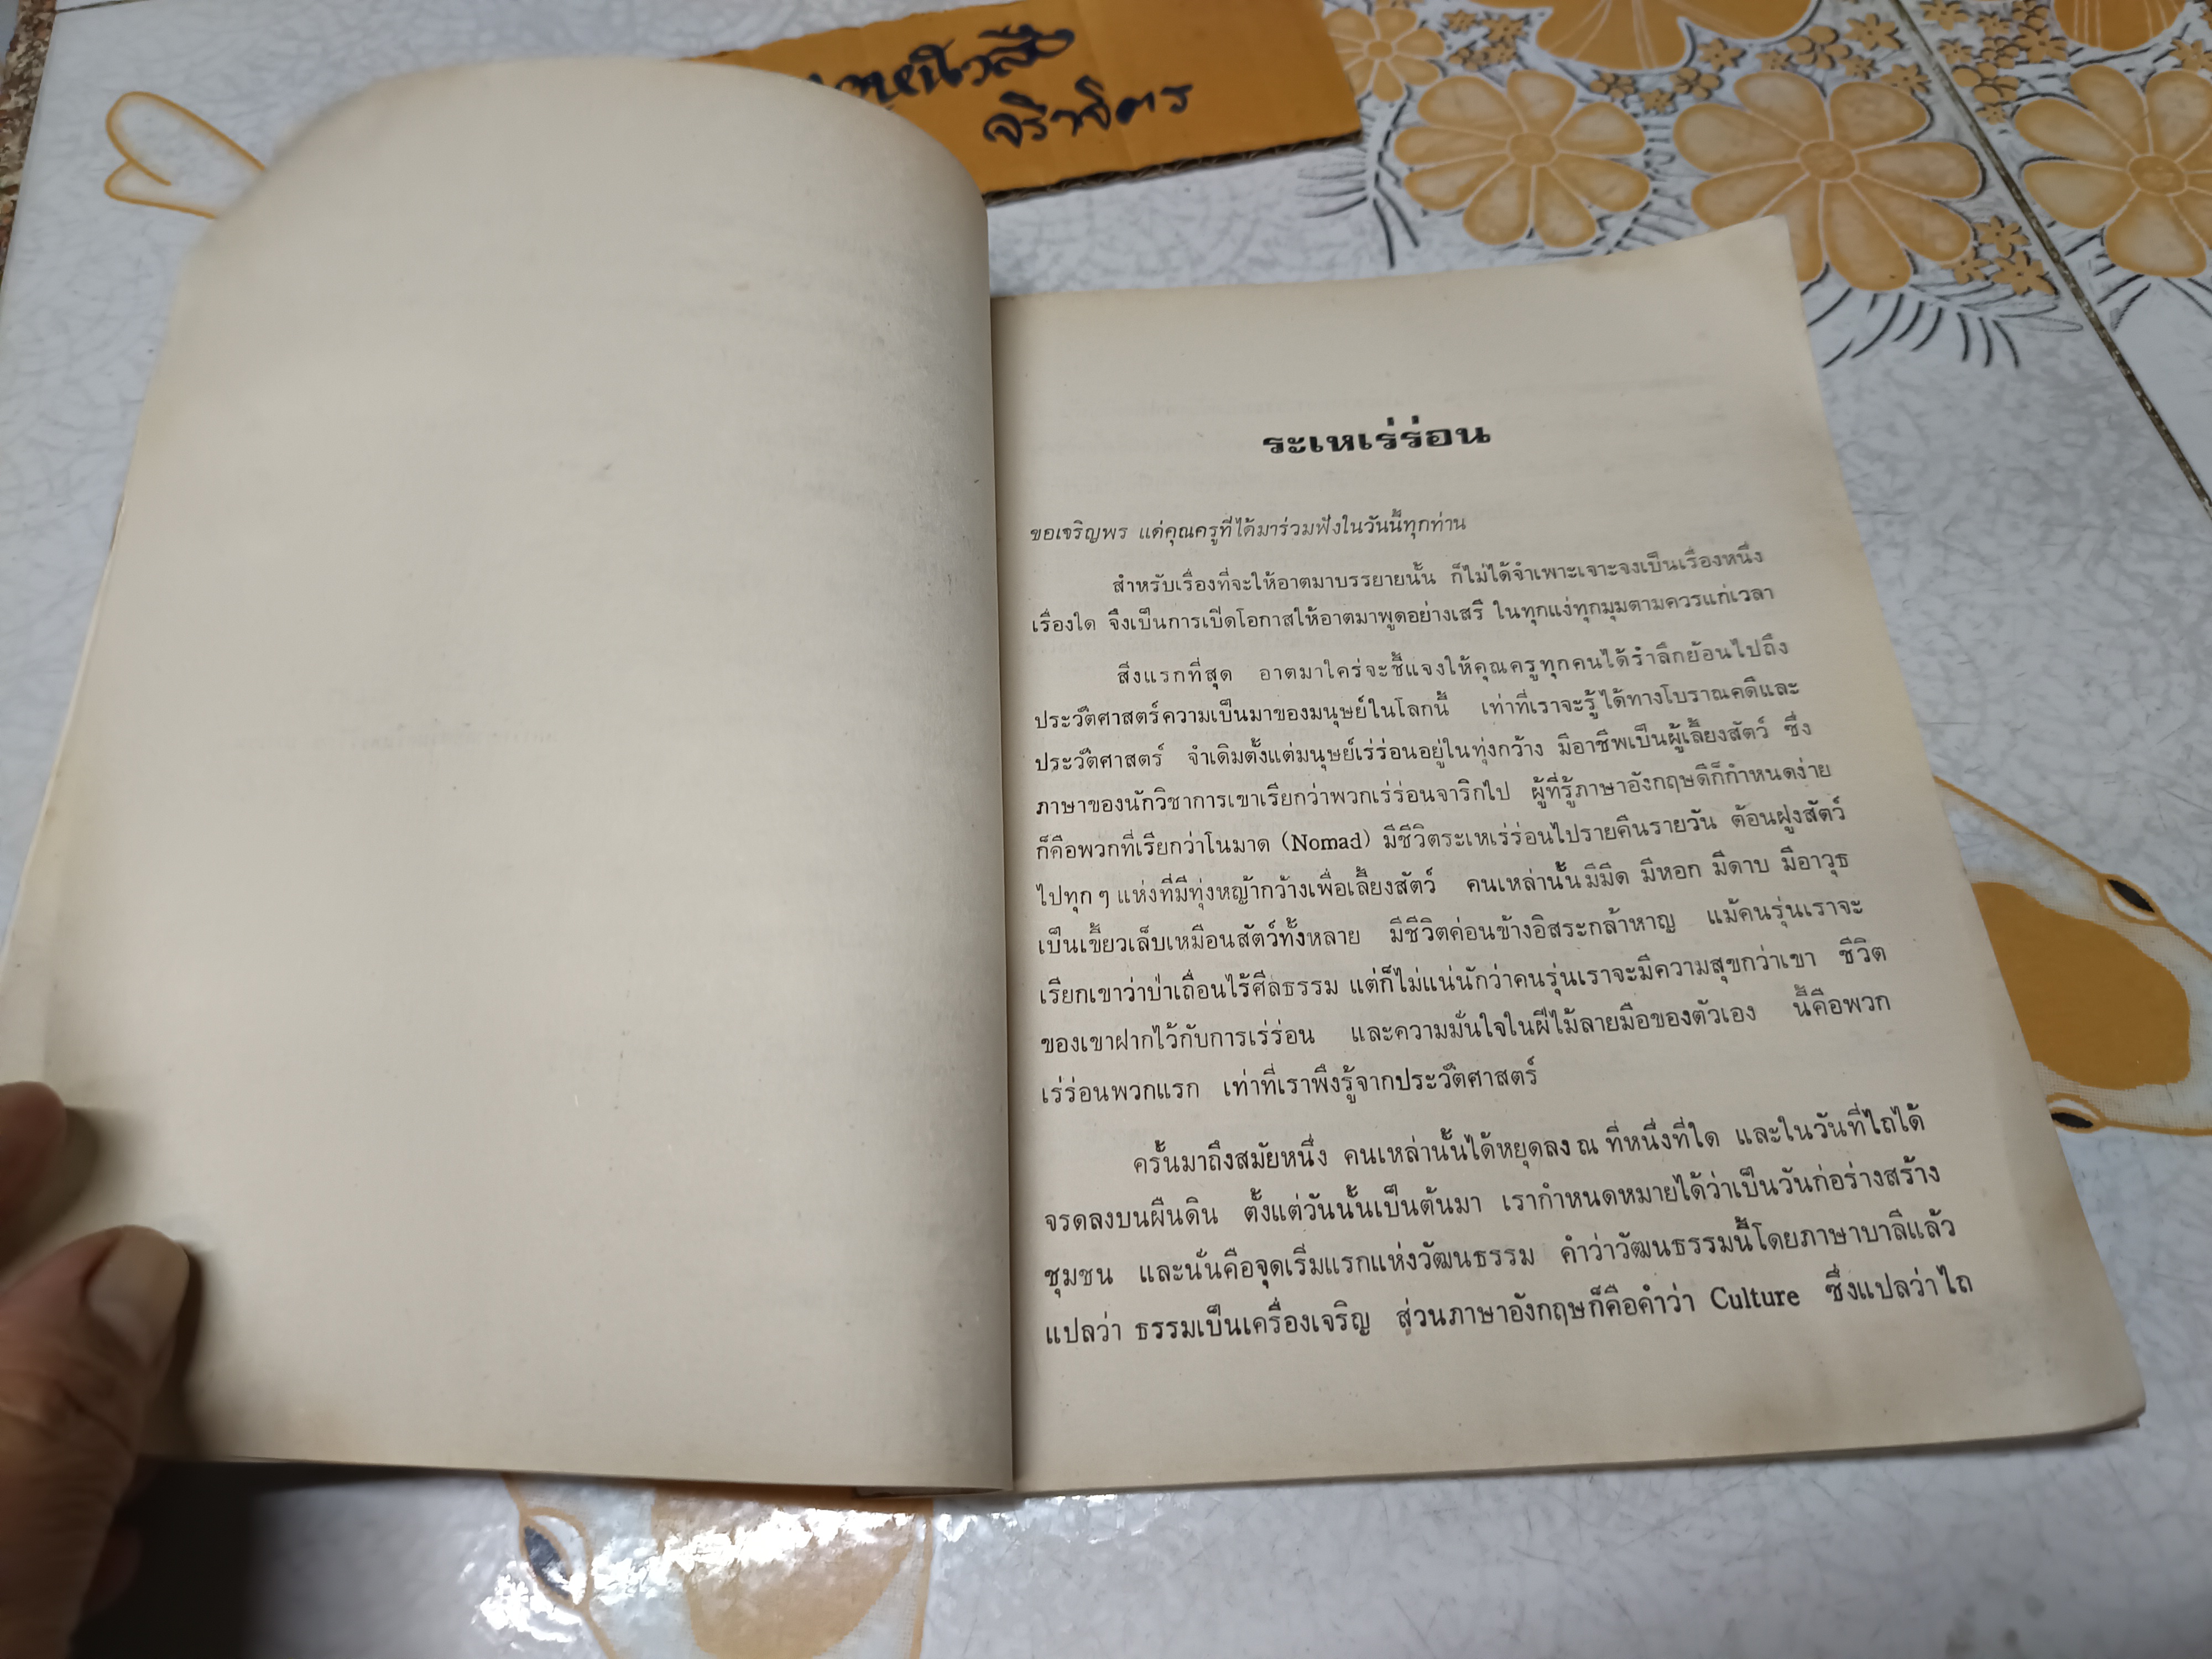 จิราพิตร
ระเหเร่ร่อน
ขอเจริญพร แด่คุณครูที่ได้มาร่วมฟังในวันนี้ทุกท่าน
สำหรับเรื่องที่จะให้อาตมาบรรยายนั้น ก็ไม่ได้จำเพาะเจาะจงเป็นเรื่องหนึ่ง
เรื่องใด จึงเป็นการเปิดโอกาสให้อาตมาพูดอย่างเสรี ในทุกแง่ทุกมุมตามควรแก่เวลา
สิ่งแรกที่สุด อาตมาใคร่จะชี้แจงให้คุณครูทุกคนได้รำลึกย้อนไปถึง
ประวัติศาสตร์ความเป็นมาของมนุษย์ในโลกนี้ เท่าที่เราจะรู้ได้ทางโบราณคดีและ
ประวัติศาสตร์ จำเดิมตั้งแต่มนุษย์เร่ร่อนอยู่ในทุ่งกว้าง มีอาชีพเป็นผู้เลี้ยงสัตว์ ซึ่ง
ภาษาของนักวิชาการเขาเรียกว่าพวกเร่ร่อนจาริกไป ผู้ที่รู้ภาษาอังกฤษดีก็กำหนดง่าย
ก็คือพวกที่เรียกว่าโนมาด (Nomad) มีชีวิตระเหเร่ร่อนไปรายคืนรายวัน ต้อนฝูงสัตว์
ไปทุก ๆ แห่งที่มีทุ่งหญ้ากว้างเพื่อเลี้ยงสัตว์ คนเหล่านั้นมีมีด มีหอก มีดาบ มีอาวุธ
เป็นเขี้ยวเล็บเหมือนสัตว์ทั้งหลาย มีชีวิตค่อนข้างอิสระกล้าหาญ แม้คนรุ่นเราจะ
เรียกเขาว่าป่าเถื่อนไร้ศีลธรรม แต่ก็ไม่แน่นักว่าคนรุ่นเราจะมีความสุขกว่าเขา ชีวิต
ของเขาฝากไว้กับการเร่ร่อน และความมั่นใจในฝีไม้ลายมือของตัวเอง นี้คือพวก
เร่ร่อนพวกแรก เท่าที่เราพึงรู้จากประวัติศาสตร์
ครั้นมาถึงสมัยหนึ่ง คนเหล่านั้นได้หยุดลง ณ ที่หนึ่งที่ใด และในวันที่ไถได้
จรดลงบนผืนดิน ตั้งแต่วันนั้นเป็นต้นมา เรากำหนดหมายได้ว่าเป็นวันก่อร่างสร้าง
ชุมชน และนั่นคือจุดเริ่มแรกแห่งวัฒนธรรม คำว่าวัฒนธรรมนี้โดยภาษาบาลีแล้ว
แปลว่า ธรรมเป็นเครื่องเจริญ ส่วนภาษาอังกฤษก็คือคำว่า Culture ซึ่งแปลว่าไถ